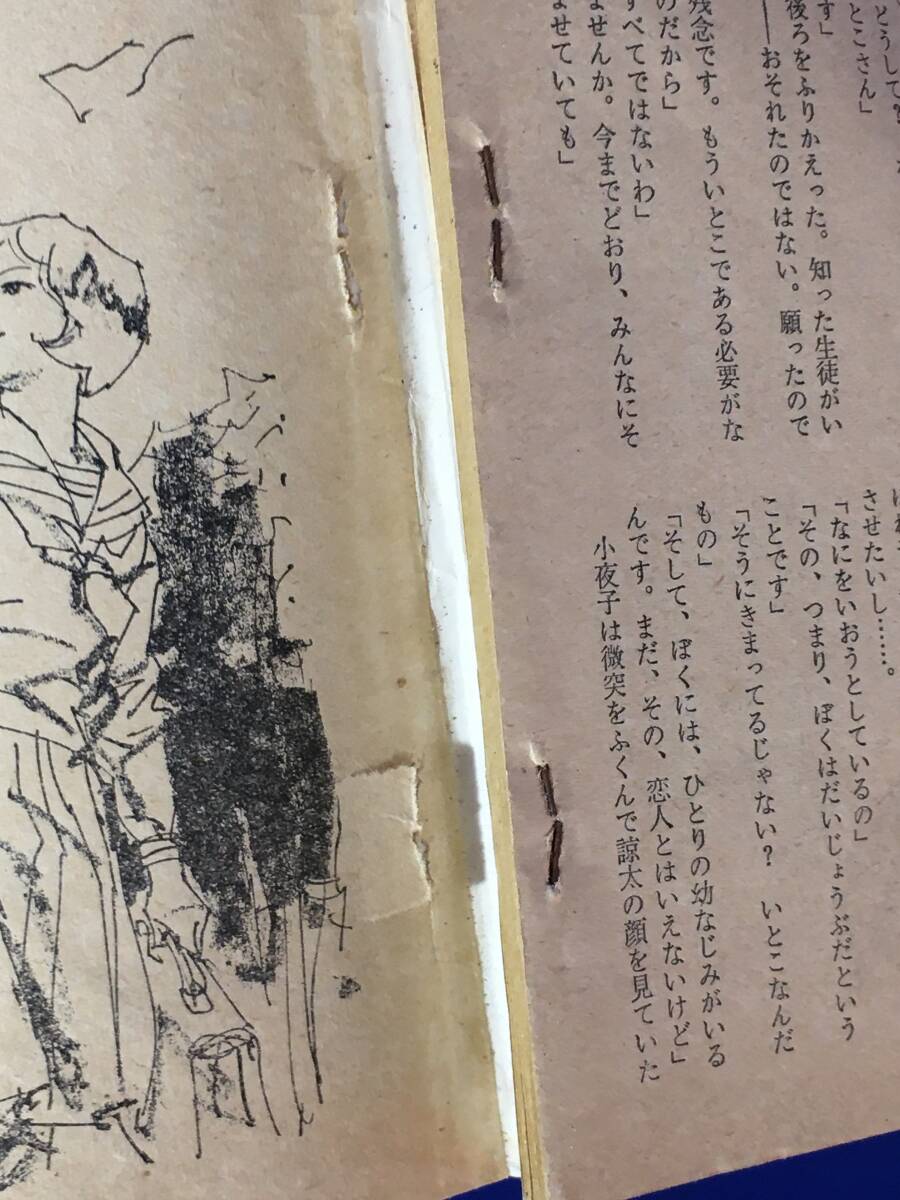 とこさん」
す」
後ろをふりかえった。知った生徒がい
――おそれたのではない。願ったので
残念です。もういとこである必要がな
のだから」
すべてではないわ」
ませんか。今までどおり、みんなにそ
ませていても」
させたいし……。
「なにをいおうとしているの」
「その、つまり、ぼくはだいじょうぶだという
ことです」
「そうにきまってるじゃない？　いとこなんだ
もの」
「そして、ぼくには、ひとりの幼なじみがいる
んです。まだ、その、恋人とはいえないけど」
小夜子は微突をふくんで諒太の顔を見ていた